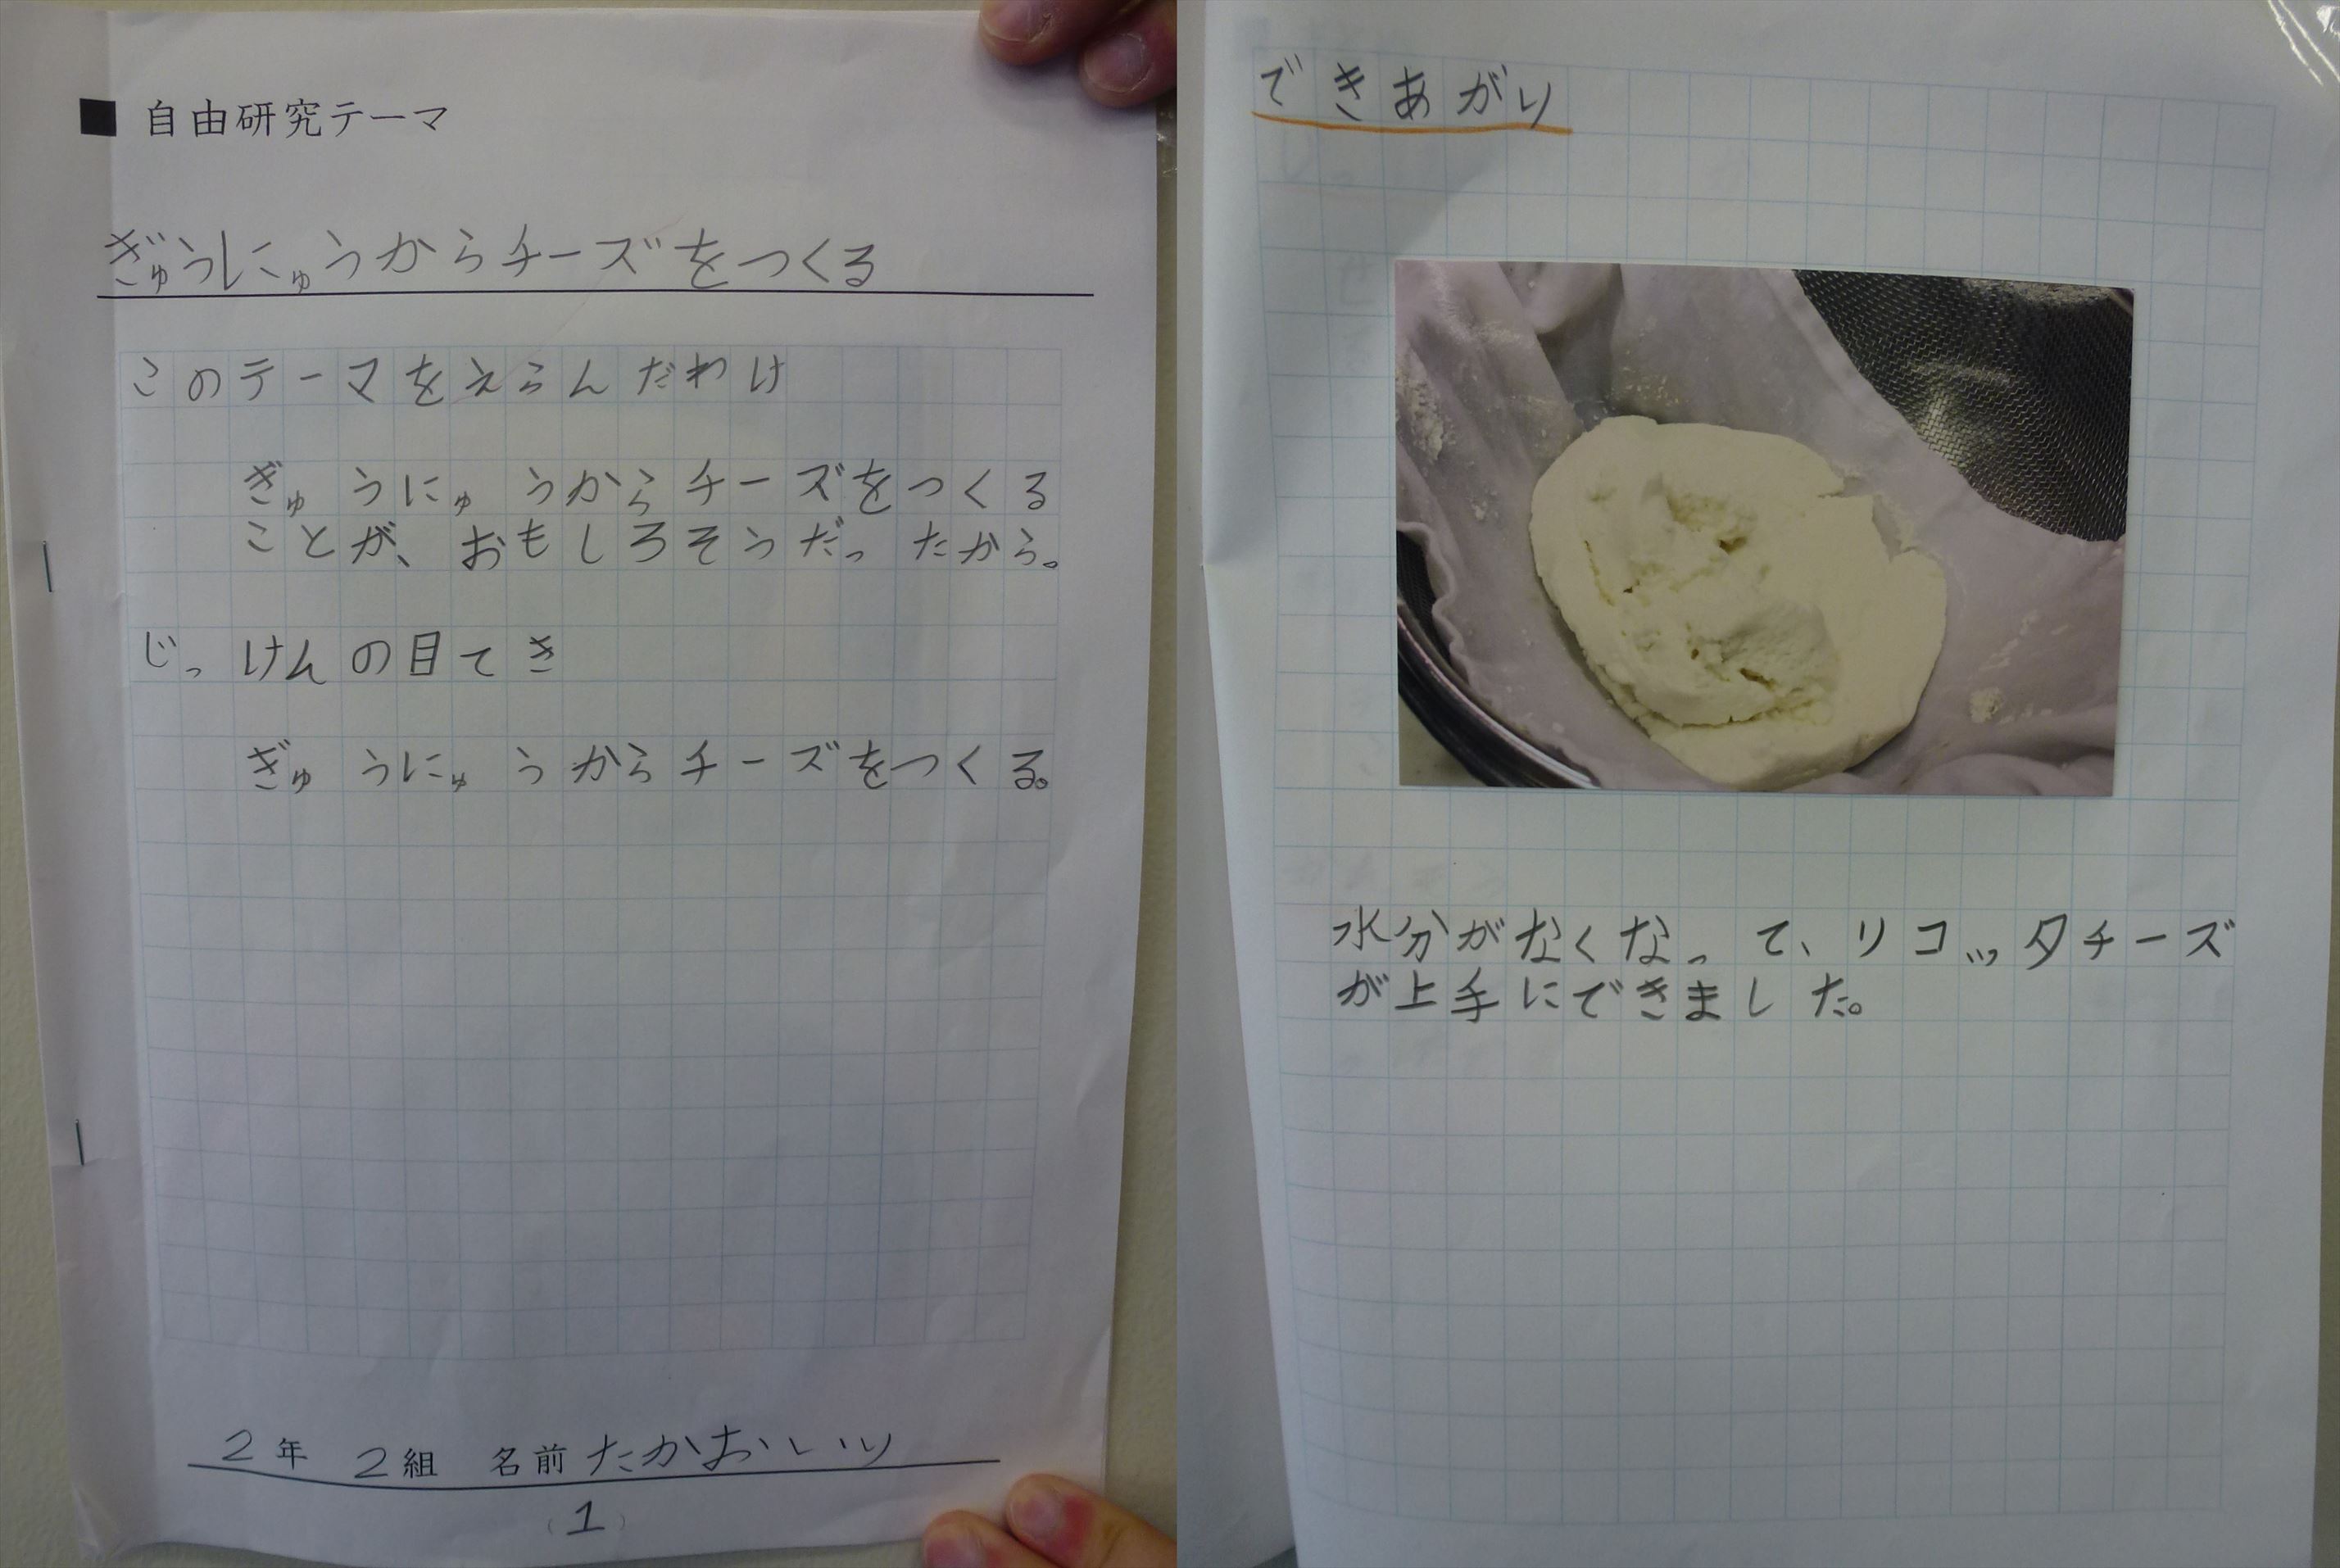 ■ 自由研究テーマ
ぎゅうにゅうからチーズをつくる
このテーマをえらんだわけ
ぎゅうにゅうからチーズをつくる
ことが、おもしろそうだったから。
じっけんの目てき
ぎゅうにゅうからチーズをつくる。
2年 2組 名前 たかおいり
(1)
できあがり
水分がなくなって、リコッタチーズ
が上手にできました。